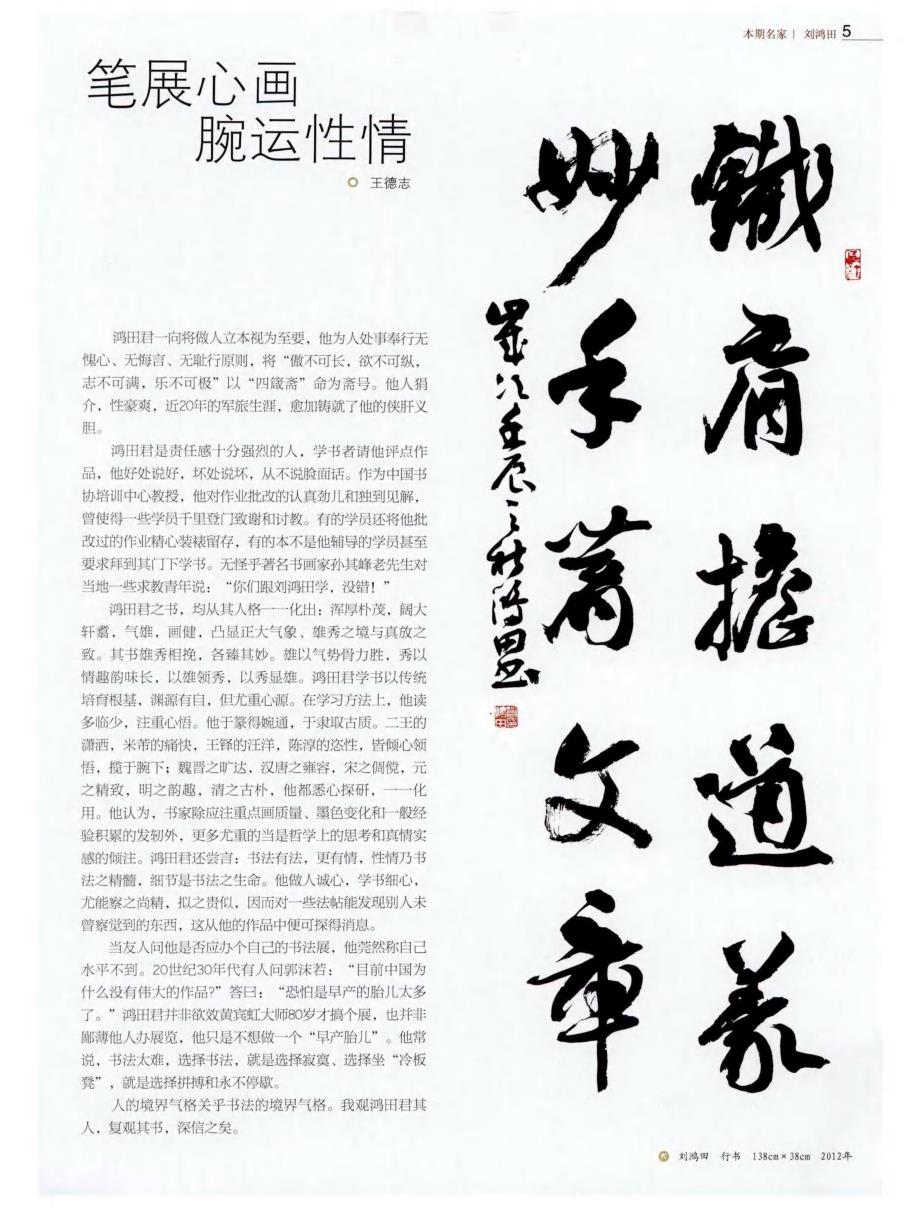 本期名家 | 刘鸿田 5
笔展心画
腕运性情
王德志
鸿田君一向将做人立本视为至要，他为人处事奉行无
愧心、无悔言、无耻行原则，将“傲不可长，欲不可纵，
志不可满，乐不可极”以“四箴斋”命为斋号。他人狷
介，性豪爽，近20年的军旅生涯，愈加铸就了他的侠肝义
胆。
鸿田君是责任感十分强烈的人，学书者请他评点作
品，他好处说好，坏处说坏，从不说脸面话。作为中国书
协培训中心教授，他对作业批改的认真劲儿和独到见解，
曾使得一些学员千里登门致谢和讨教。有的学员还将他批
改过的作业精心装裱留存，有的本不是他辅导的学员甚至
要求拜到其门下学书。无怪乎著名书画家孙其峰老先生对
当地一些求教青年说：“你们跟刘鸿田学，没错！”
鸿田君之书，均从其人格一一化出：浑厚朴茂，阔大
轩翥，气雄，画健，凸显正大气象、雄秀之境与真放之
致。其书雄秀相挽，各臻其妙。雄以气势骨力胜，秀以
情趣韵味长，以雄领秀，以秀显雄。鸿田君学书以传统
培育根基，渊源有自，但尤重心源。在学习方法上，他读
多临少，注重心悟。他于篆得婉通，于隶取古质。二王的
潇洒，米芾的痛快，王铎的汪洋，陈淳的恣性，皆倾心领
悟，揽于腕下；魏晋之旷达，汉唐之雍容，宋之倜傥，元
之精致，明之韵趣，清之古朴，他都悉心探研，一一化
用。他认为，书家除应注重点画质量、墨色变化和一般经
验积累的发轫外，更多尤重的当是哲学上的思考和真情实
感的倾注。鸿田君还尝言：书法有法，更有情，性情乃书
法之精髓，细节是书法之生命。他做人诚心，学书细心，
尤能察之尚精，拟之贵似，因而对一些法帖能发现别人未
曾察觉到的东西，这从他的作品中便可探得消息。
当友人问他是否应办个自己的书法展，他莞然称自己
水平不到。20世纪30年代有人问郭沫若：“目前中国为
什么没有伟大的作品？”答曰：“恐怕是早产的胎儿太多
了。”鸿田君并非欲效黄宾虹大师80岁才搞个展，也并非
鄙薄他人办展览，他只是不想做一个“早产胎儿”。他常
说，书法太难，选择书法，就是选择寂寞、选择坐“冷板
凳”，就是选择拼搏和永不停歇。
人的境界气格关乎书法的境界气格。我观鸿田君其
人，复观其书，深信之矣。
鐵肩擔道義
妙手著文章
歲次壬辰之秋鴻田書
刘鸿田 行书 138cm×38cm 2012年